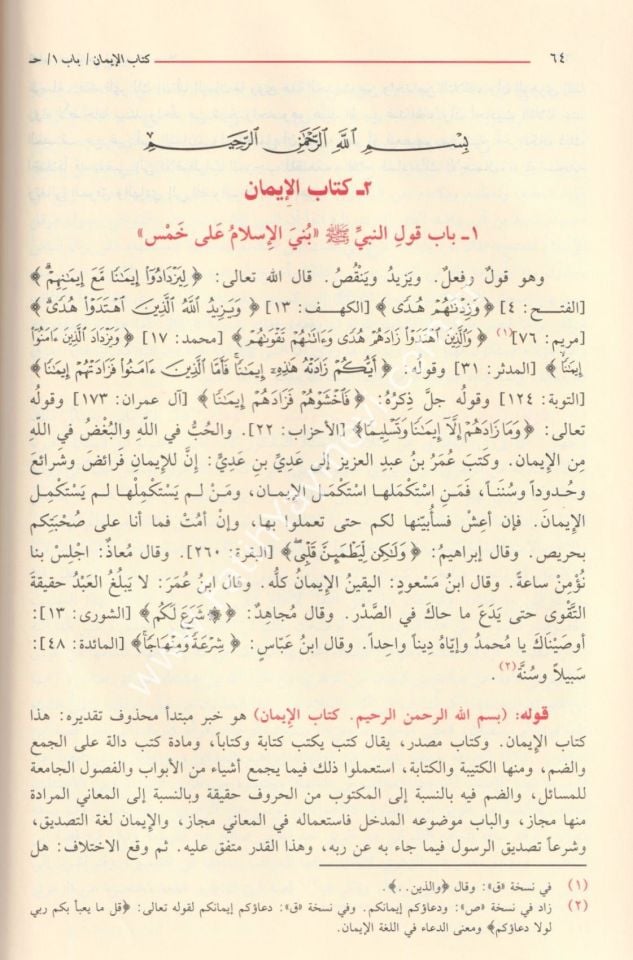 ٦٤
كتاب الإيمان/ باب ١/ حـ
بِسْمِ اللَّهِ الرَّحْمَٰنِ الرَّحِيمِ
٢ـ كتاب الإيمان
١ـ باب قولِ النبيِّ ﷺ «بُنِيَ الإسلامُ على خَمْسٍ»
وهو قولٌ وفِعلٌ. ويَزيدُ ويَنقُصُ. قال الله تعالى: ﴿لِيَزْدَادُوٓا۟ إِيمَٰنًا مَّعَ إِيمَٰنِهِمْ﴾
[الفتـح: ٤] ﴿وَزِدْنَٰهُمْ هُدًى﴾ [الكهـف: ١٣] ﴿وَيَزِيدُ ٱللَّهُ ٱلَّذِينَ ٱهْتَدَوْا۟ هُدًى﴾
[مريم: ٧٦] (١) ﴿وَٱلَّذِينَ ٱهْتَدَوْا۟ زَادَهُمْ هُدًى وَءَاتَىٰهُمْ تَقْوَىٰهُمْ﴾ [محمد: ١٧] ﴿وَيَزْدَادَ ٱلَّذِينَ ءَامَنُوٓا۟
إِيمَٰنًا﴾ [المدثر: ٣١] وقولُه: ﴿أَيُّكُمْ زَادَتْهُ هَٰذِهِۦٓ إِيمَٰنًا فَأَمَّا ٱلَّذِينَ ءَامَنُوا۟ فَزَادَتْهُمْ إِيمَٰنًا﴾
[التوبة: ١٢٤] وقوله جلَّ ذِكرُه: ﴿فَٱخْشَوْهُمْ فَزَادَهُمْ إِيمَٰنًا﴾ [آل عمران: ١٧٣] وقولُه
تعالى: ﴿وَمَا زَادَهُمْ إِلَّآ إِيمَٰنًا وَتَسْلِيمًا﴾ [الأحزاب: ٢٢]. والحُبُّ في اللهِ والبُغْضُ في اللهِ
مِن الإيمان. وكتَبَ عُمَرُ بنُ عبدِ العزيزِ إلى عَدِيِّ بنِ عَدِيٍّ: إنَّ للإيمانِ فَرائضَ وشَرائعَ
وحُدوداً وسُنَناً، فمَنِ اسْتكْمَلَهـا اسْتكْمَـلَ الإيمـان، ومَـنْ لـم يَسْتَكْمِلْهـا لـم يَسْتكْمِـلِ
الإيمَانَ. فإن أعِشْ فسأُبيِّنها لكم حتى تعملوا بها، وإنْ أمُتْ فما أنا على صُحْبَتِكم
بحريص. وقال إبراهيمُ: ﴿وَلَٰكِن لِّيَطْمَئِنَّ قَلْبِى﴾ [البقرة: ٢٦٠]. وقال مُعاذٌ: اجْلِسْ بنا
نُؤْمِنْ ساعةً. وقال ابنُ مَسعودٍ: اليقينُ الإيمانُ كلُّه. وقال ابنُ عُمَرَ: لا يَبلُغُ العَبْدُ حقيقةَ
التَّقْوى حتى يَدَعَ ما حاكَ في الصَّدْر. وقال مُجاهِدٌ: ﴿شَرَعَ لَكُم﴾ [الشورى: ١٣]:
أوصَيْناكَ يا محمدُ وإيّاهُ دِيناً واحِداً. وقال ابنُ عبّاسٍ: ﴿شِرْعَةً وَمِنْهَاجًا﴾ [المائدة: ٤٨]:
سَبيلاً وسُنةً(٢).
قوله: (بسم الله الرحمن الرحيم. كتاب الإيمان) هو خبر مبتدأ محذوف تقديره: هذا
كتاب الإيمان. وكتاب مصدر، يقال كتب يكتب كتابة وكتاباً، ومادة كتب دالة على الجمع
والضم، ومنها الكتيبة والكتابة، استعملوا ذلك فيما يجمع أشياء من الأبواب والفصول الجامعة
للمسائل، والضم فيه بالنسبة إلى المكتوب من الحروف حقيقة وبالنسبة إلى المعاني المرادة
منها مجاز، والباب موضوعه المدخل فاستعماله في المعاني مجاز، والإيمان لغة التصديق،
وشرعاً تصديق الرسول فيما جاء به عن ربه، وهذا القدر متفق عليه. ثم وقع الاختلاف: هل
(١) في نسخة «ق»: وقال ﴿والذين..﴾.
(٢) زاد في نسخة «ص»: ودعاؤكم إيمانكم. وفي نسخة «ق»: دعاؤكم إيمانكم لقوله تعالى: ﴿قل ما يعبأ بكم ربي
لولا دعاؤكم﴾ ومعنى الدعاء في اللغة الإيمان.